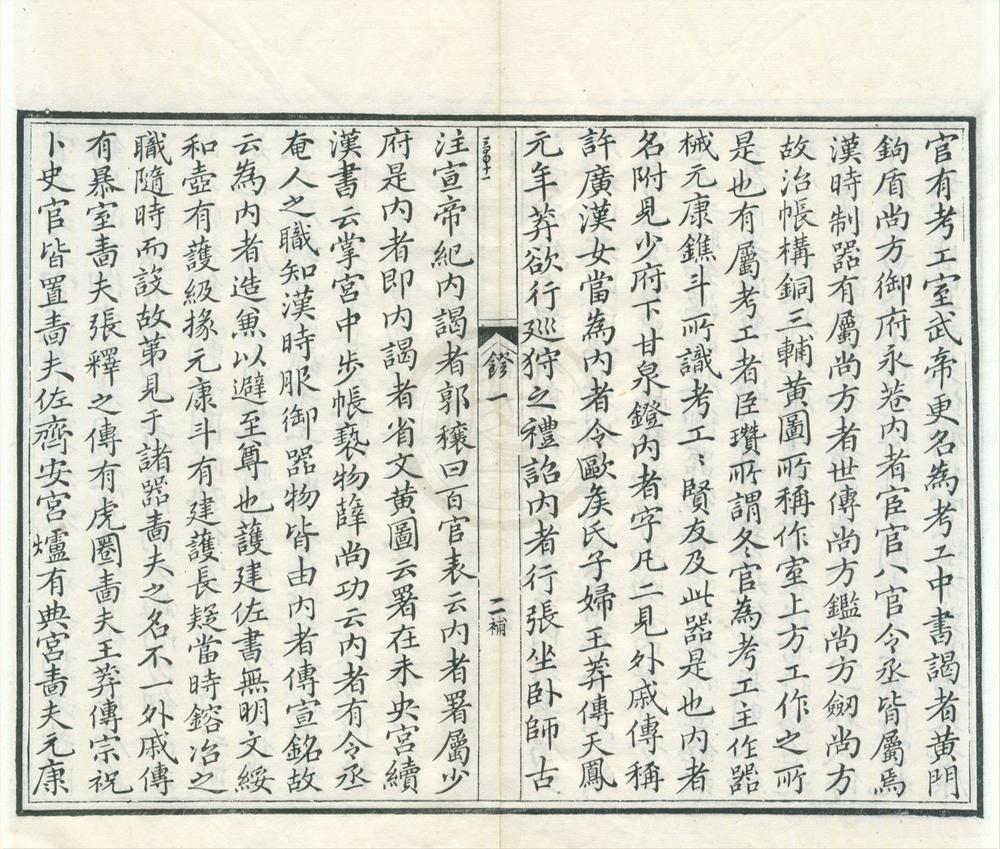 官有考工室武帝更名為考工中書謁者黃門
鉤盾尚方御府永巷內者宦官八官令丞皆屬焉
漢時制器有屬尚方者世傳尚方鑑尚方劒尚方
故治帳構銅三輔黃圖所稱作室上方工作之所
是也有屬考工者臣瓚所謂冬官為考工主作器
械元康鐎斗所識考工〻賢友及此器是也內者
名附見少府下甘泉鐙內者字凡二見外戚傳稱
許廣漢女當為內者令歐矦氏子婦王莽傳天鳳
元年莽欲行巡狩之禮詔內者行張坐卧師古
鐙一
二補
注宣帝紀內謁者郭穰曰百官表云內者署屬少
府是內者即內謁者省文黃圖云署在未央宮續
漢書云掌宮中步帳褻物薛尚功云內者有令丞
奄人之職知漢時服御器物皆由內者傳宣銘故
云為內者造兼以避至尊也護建佐書無明文綏
和壺有護級掾元康斗有建護長疑當時鎔冶之
職隨時而設故第見于諸器嗇夫之名不一外戚傳
有暴室嗇夫張釋之傳有虎圈嗇夫王莽傳宗祝
卜史官皆置嗇夫佐齊安宮爐有典宮嗇夫元康